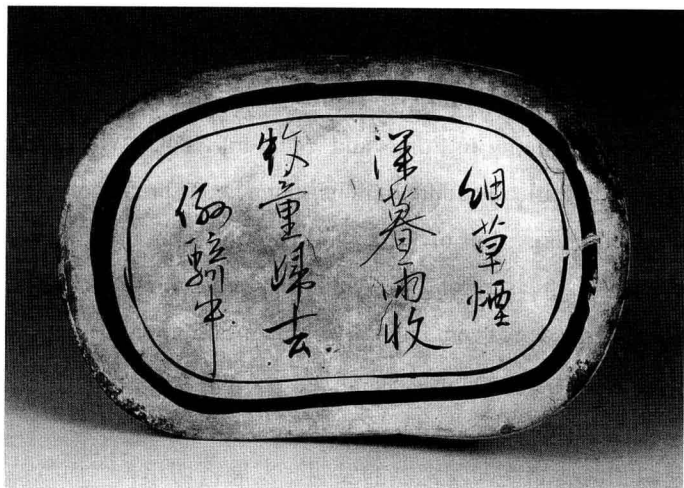 細草煙
深暮雨收
牧童歸去
倒騎牛